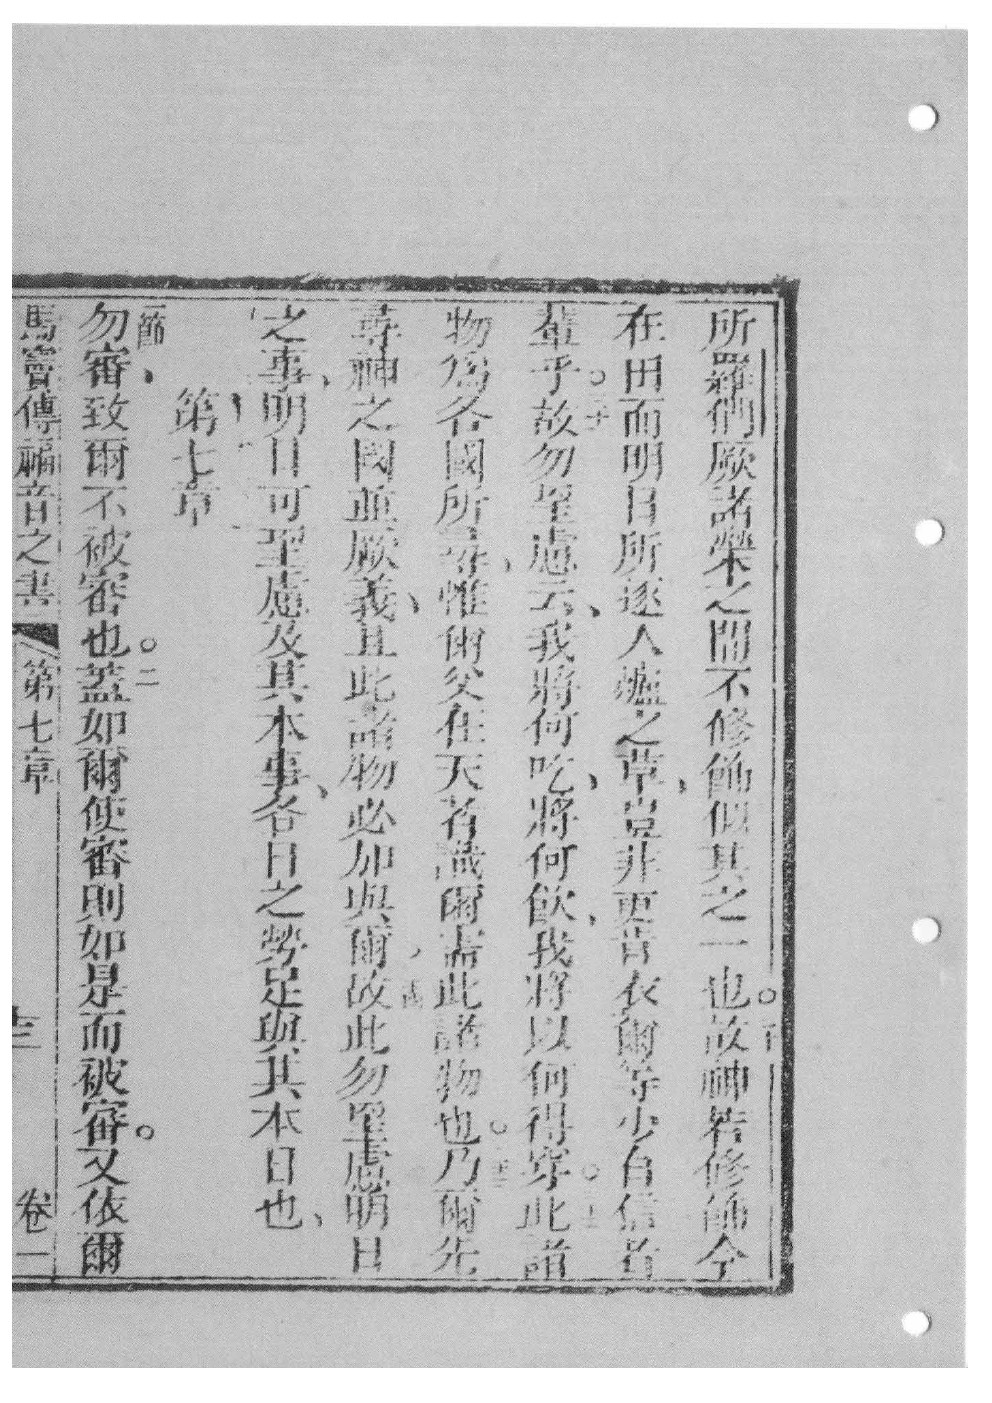 所羅們厥諸榮之間不修飾似其之一也。三十故神若修飾今
在田而明日所逐入爐之草、豈非更肯衣爾等少自信者
輩乎。三十一故勿罣慮云、我將何吃、將何飲、我將以何得穿。三十二此諸
物為各國所尋、惟爾父在天者識爾需此諸物也。三十三乃爾先
尋神之國並厥義、且此諸物必加與爾、三十四故此勿罣慮明日
之事、明日可罣慮及其本事、各日之勞足與其本日也、
第七章
一節勿審、致爾不被審也。二蓋如爾使審則如是而被審。又依爾
馬竇傳福音之書 第七章 十三 卷一